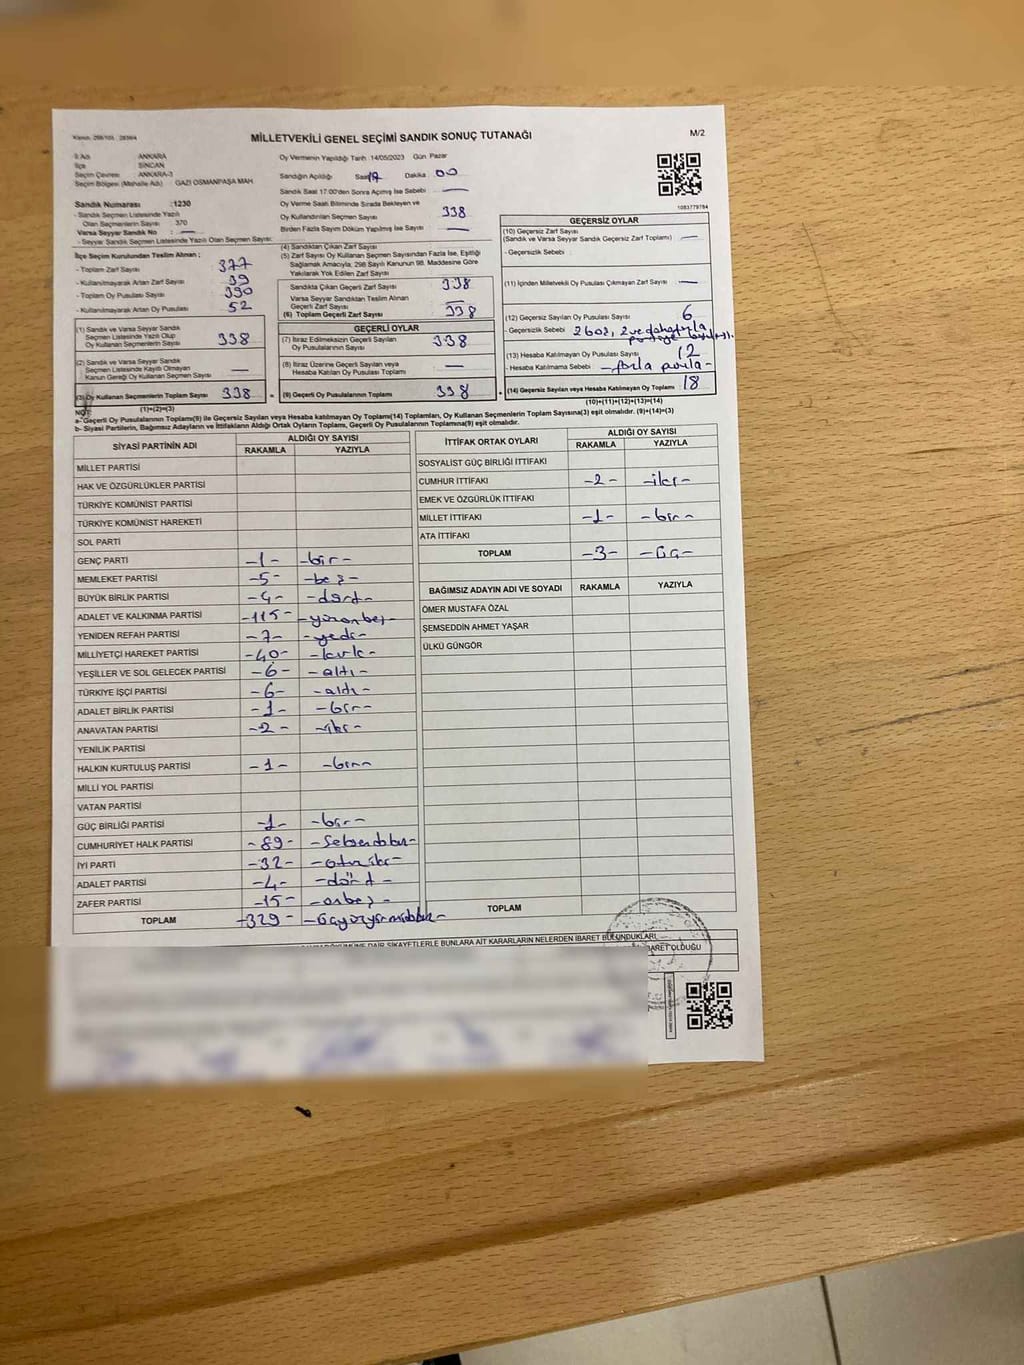 Kanun: 298/105 : 2839/4
MİLLETVEKİLİ GENEL SEÇİMİ SANDIK SONUÇ TUTANAĞI
M/2
İl Adı ANKARA
İlçe SİNCAN
Seçim Çevresi ANKARA-3
Seçim Bölgesi (Mahalle Adı) GAZİ OSMANPAŞA MAH.
Oy Vermenin Yapıldığı Tarih 14/05/2023 Gün Pazar
Sandığın Açıldığı Saat 17 Dakika 00
Sandık Saat 17:00'den Sonra Açılmış İse Sebebi —
Oy Verme Saati Bitiminde Sırada Bekleyen ve
Oy Kullandırılan Seçmen Sayısı 338
Birden Fazla Sayım Döküm Yapılmış İse Sayısı —
1083779784
Sandık Numarası :1230
- Sandık Seçmen Listesinde Yazılı
Olan Seçmenlerin Sayısı 370
Varsa Seyyar Sandık No : —
- Seyyar Sandık Seçmen Listesinde Yazılı Olan Seçmen Sayısı:
İlçe Seçim Kurulundan Teslim Alınan ;
- Toplam Zarf Sayısı 377
- Kullanılmayarak Artan Zarf Sayısı 39
- Toplam Oy Pusulası Sayısı 390
- Kullanılmayarak Artan Oy Pusulası 52
(1) Sandık ve Varsa Seyyar Sandık
Seçmen Listesinde Yazılı Olup
Oy Kullanan Seçmenlerin Sayısı 338
(2) Sandık ve Varsa Seyyar Sandık
Seçmen Listesinde Kayıtlı Olmayan
Kanun Gereği Oy Kullanan Seçmen Sayısı —
(3) Oy Kullanan Seçmenlerin Toplam Sayısı 338
(1)+(2)=(3)
(4) Sandıktan Çıkan Zarf Sayısı
(5) Zarf Sayısı Oy Kullanan Seçmen Sayısından Fazla İse, Eşitliği
Sağlamak Amacıyla, 298 Sayılı Kanunun 98. Maddesine Göre
Yakılarak Yok Edilen Zarf Sayısı
Sandıkta Çıkan Geçerli Zarf Sayısı 338
Varsa Seyyar Sandıktan Teslim Alınan
Geçerli Zarf Sayısı —
(6) Toplam Geçerli Zarf Sayısı 338
GEÇERLİ OYLAR
(7) İtiraz Edilmeksizin Geçerli Sayılan
Oy Pusulasının Sayısı 338
(8) İtiraz Üzerine Geçerli Sayılan veya
Hesaba Katılan Oy Pusulası Toplamı —
= (9) Geçerli Oy Pusulalarının Toplamı 338 +
GEÇERSİZ OYLAR
(10) Geçersiz Zarf Sayısı
(Sandık ve Varsa Seyyar Sandık Geçersiz Zarf Toplamı) —
- Geçersizlik Sebebi
(11) İçinden Milletvekili Oy Pusulası Çıkmayan Zarf Sayısı —
(12) Geçersiz Oy Pusulası Sayısı 6
- Geçersizlik Sebebi 2 boş, 2 ve daha fazla
(13) Hesaba Katılmayan Oy Pusulası Sayısı 12
- Hesaba Katılmama Sebebi
(14) Geçersiz Sayılan veya Hesaba Katılmayan Oy Toplamı 18
(10)+(11)+(12)+(13)=(14)
NOT:
a- Geçerli Oy Pusulalarının Toplamı(9) ile Geçersiz Sayılan veya Hesaba katılmayan Oy Toplamı(14) Toplamları, Oy Kullanan Seçmenlerin Toplam Sayısına(3) eşit olmalıdır. (9)+(14)=(3)
b- Siyasi Partilerin, Bağımsız Adayların ve İttifakların Aldığı Ortak Oyların Toplamı, Geçerli Oy Pusulalarının Toplamına(9) eşit olmalıdır.
SİYASİ PARTİNİN ADI ALDIĞI OY SAYISI
RAKAMLA YAZIYLA
MİLLET PARTİSİ
HAK VE ÖZGÜRLÜKLER PARTİSİ
TÜRKİYE KOMÜNİST PARTİSİ
TÜRKİYE KOMÜNİST HAREKETİ
SOL PARTİ
GENÇ PARTİ -1- -bir-
MEMLEKET PARTİSİ -5- -beş-
BÜYÜK BİRLİK PARTİSİ -4- -dört-
ADALET VE KALKINMA PARTİSİ -115- -yüzonbeş-
YENİDEN REFAH PARTİSİ -7- -yedi-
MİLLİYETÇİ HAREKET PARTİSİ -40- -kırk-
YEŞİLLER VE SOL GELECEK PARTİSİ -6- -altı-
TÜRKİYE İŞÇİ PARTİSİ -6- -altı-
ADALET BİRLİK PARTİSİ -1- -bir-
ANAVATAN PARTİSİ -2- -iki-
YENİLİK PARTİSİ
HALKIN KURTULUŞ PARTİSİ -1- -bir-
MİLLİ YOL PARTİSİ
VATAN PARTİSİ
GÜÇ BİRLİĞİ PARTİSİ -1- -bir-
CUMHURİYET HALK PARTİSİ -89- -seksendokuz-
İYİ PARTİ -32- -otuziki-
ADALET PARTİSİ -4- -dört-
ZAFER PARTİSİ -15- -onbeş-
TOPLAM -329- -üçyüzyirmidokuz-
İTTİFAK ORTAK OYLARI ALDIĞI OY SAYISI
RAKAMLA YAZIYLA
SOSYALİST GÜÇ BİRLİĞİ İTTİFAKI
CUMHUR İTTİFAKI -2- -iki-
EMEK VE ÖZGÜRLÜK İTTİFAKI
MİLLET İTTİFAKI -1- -bir-
ATA İTTİFAKI
TOPLAM -3- -üç-
BAĞIMSIZ ADAYIN ADI VE SOYADI RAKAMLA YAZIYLA
ÖMER MUSTAFA ÖZAL
ŞEMSEDDİN AHMET YAŞAR
ÜLKÜ GÜNGÖR
TOPLAM
DÖKÜMÜNE DAİR ŞİKAYETLERLE BUNLARA AİT KARARLARIN NELERDEN İBARET BULUNDUKLARI
İBARET OLDUĞU